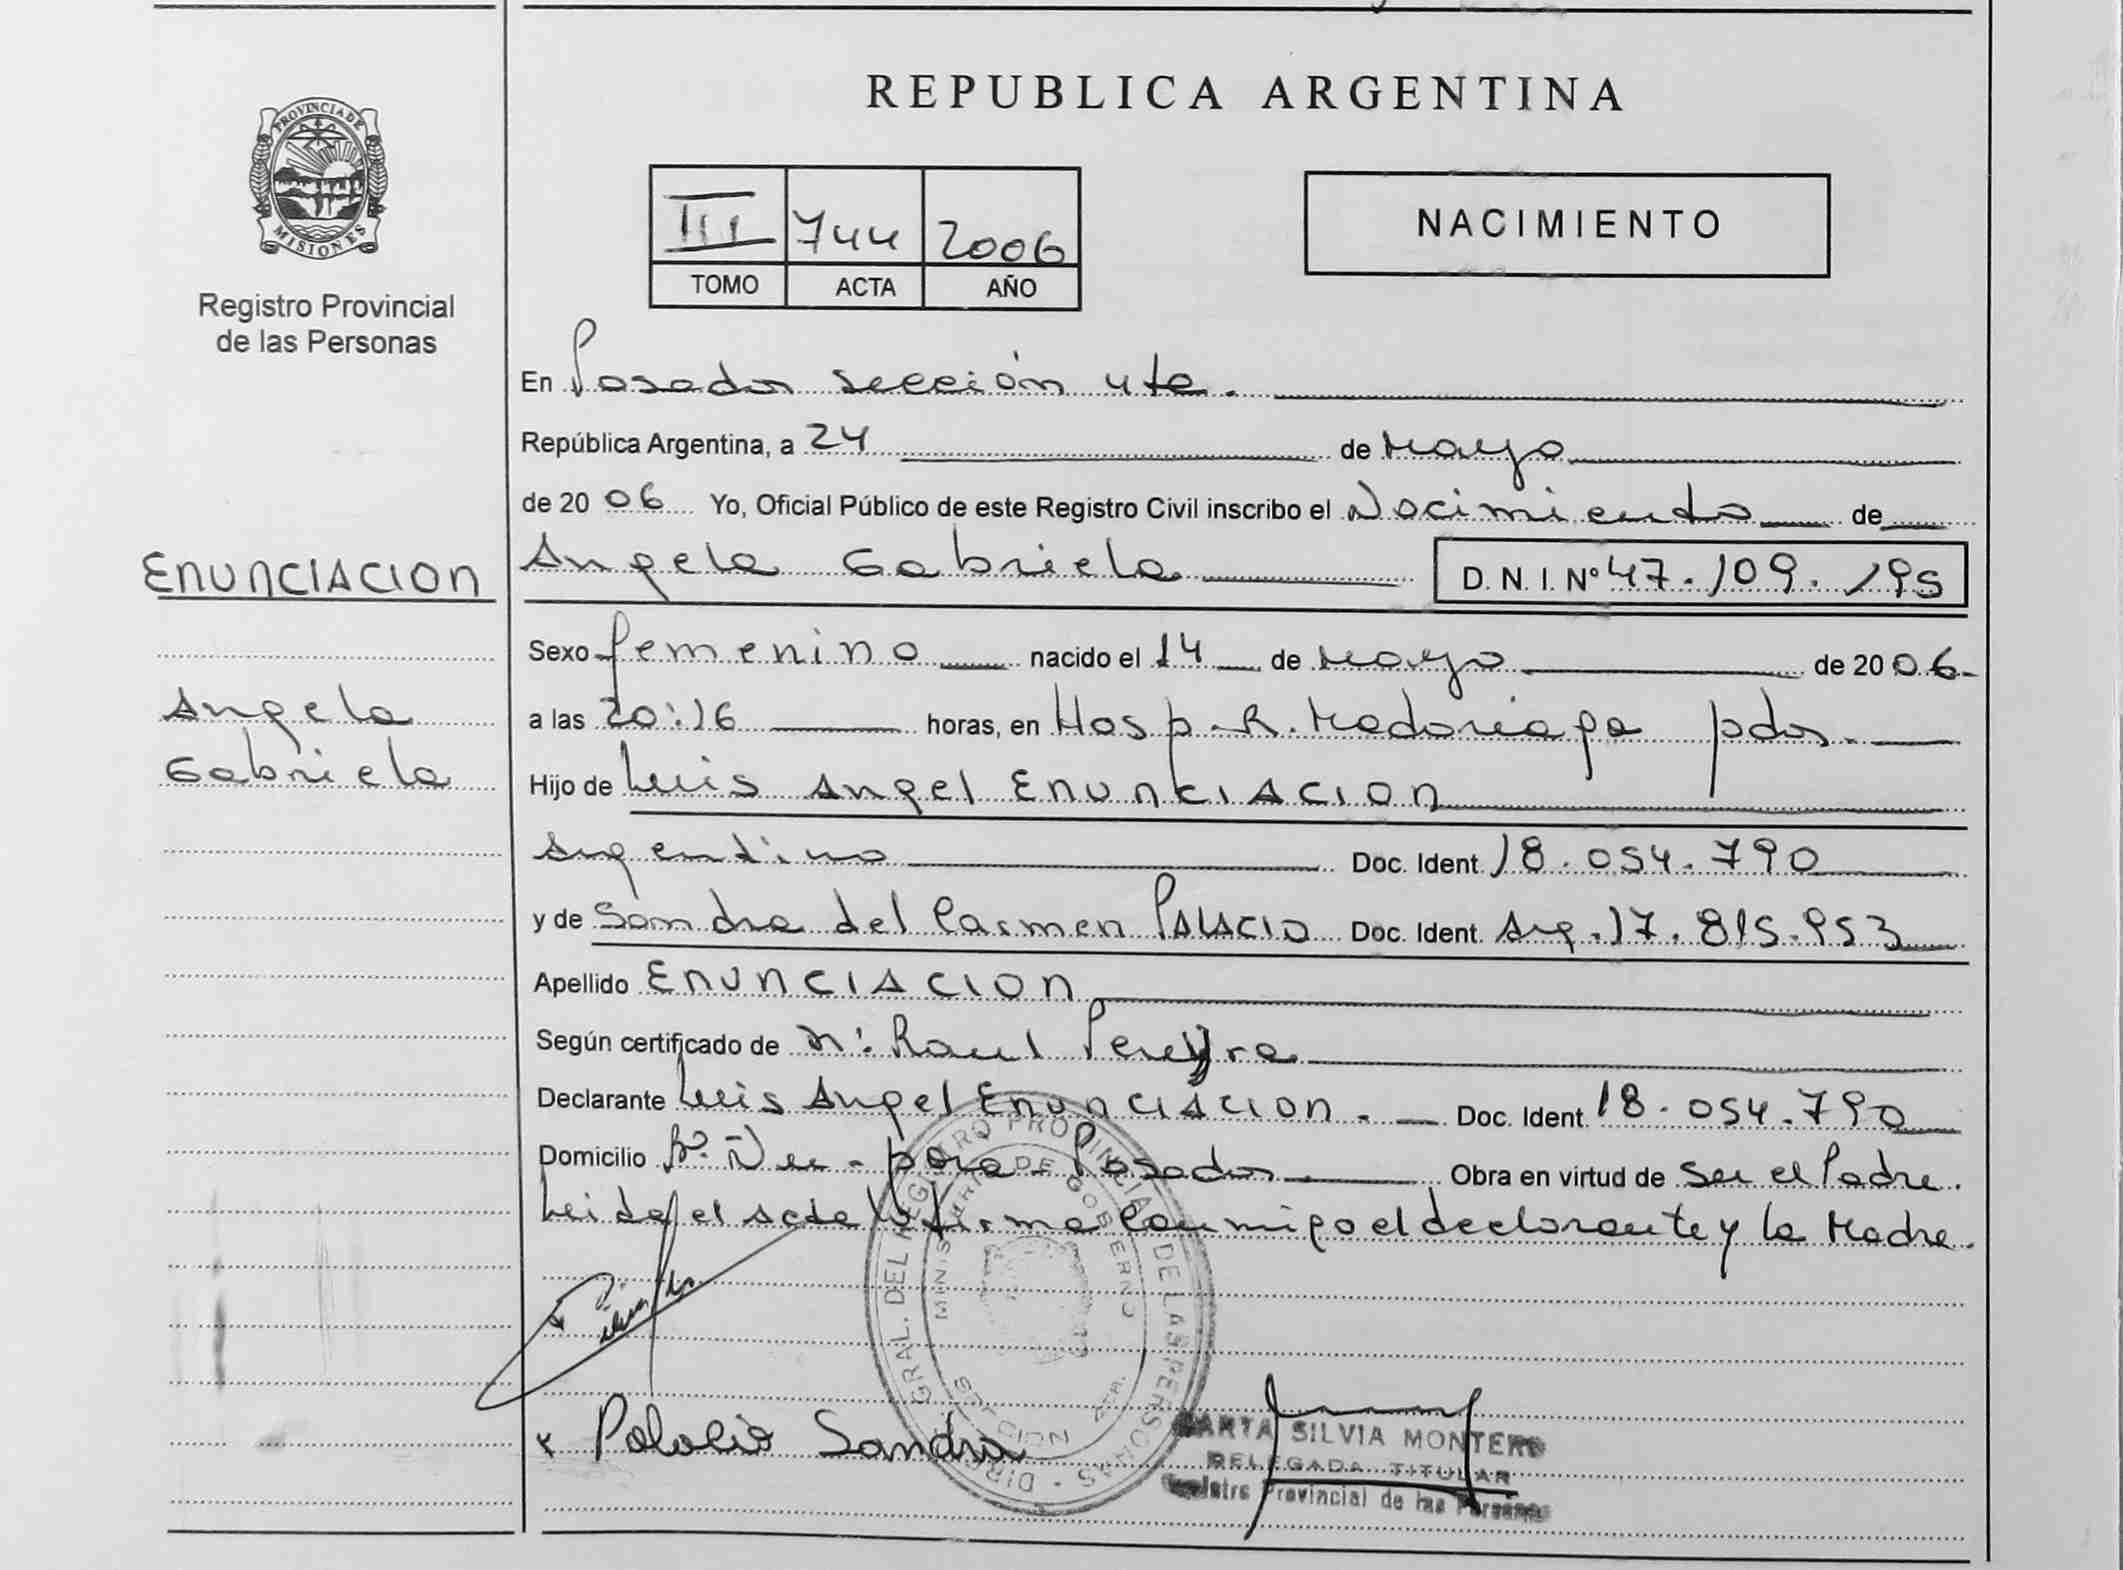 REPUBLICA ARGENTINA
PROVINCIA DE
MISIONES
Registro Provincial
de las Personas
III 744 2006
TOMO ACTA AÑO
NACIMIENTO
En Posadas sección 4ta.
República Argentina, a 24 de Mayo
de 2006 Yo, Oficial Público de este Registro Civil inscribo el Nacimiento de
ENUNCIACION
Angela Gabriela D. N. I. Nº 47.109.195
Sexo femenino nacido el 14 de Mayo de 2006.
Angela
Gabriela
a las 20:16 horas, en Hosp. R. Madariaga pdas.
Hijo de Luis Angel ENUNCIACION
Argentino Doc. Ident. 18.054.790
y de Sandra del Carmen PALACIO Doc. Ident. Arg. 17.815.953
Apellido ENUNCIACION
Según certificado de Raul Pereyra
Declarante Luis Angel ENUNCIACION. Doc. Ident. 18.054.790
Domicilio Posadas Obra en virtud de ser el Padre.
Leida el acta la firma conmigo el declarante y la Madre.
DIREC. GRAL. DEL REGISTRO PROVINCIAL DE LAS PERSONAS
MINISTERIO DE GOBIERNO
MISIONES
Palacio Sandra
MARTA SILVIA MONTERO
DELEGADA TITULAR
Registro Provincial de las Personas